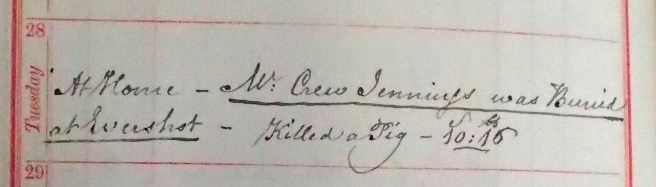 28
Tuesday
At Home - Mr. Crew Jennings was Buried
at Evershot - Killed a Pig - 10:16
29